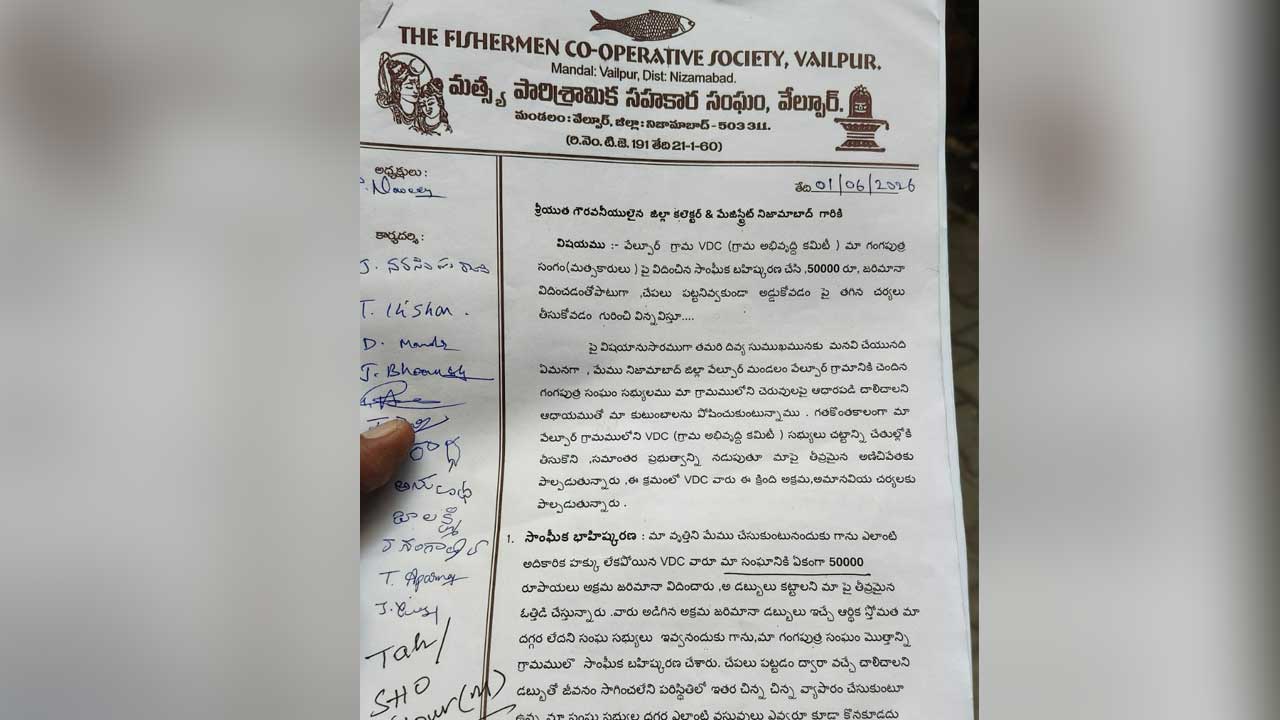 THE FISHERMEN CO-OPERATIVE SOCIETY, VAILPUR.
Mandal: Vailpur, Dist: Nizamabad.
మత్స్య పారిశ్రామిక సహకార సంఘం, వేల్పూర్.
మండలం : వేల్పూర్, జిల్లా : నిజామాబాద్ - 503 311.
(రి.నెం. టి.జె. 191 తేది 21-1-60)
అధ్యక్షులు :
కార్యదర్శి :
T. Kishan.
J. Bhoomesh
Tah/
SHO
తేది 01/06/2026
శ్రీయుత గౌరవనీయులైన జిల్లా కలెక్టర్ & మేజిస్ట్రేట్ నిజామాబాద్ గారికి
విషయము :- వేల్పూర్ గ్రామ VDC (గ్రామ అభివృద్ధి కమిటీ ) మా గంగపుత్ర
సంగం(మత్సకారులు ) పై విదించిన సాంఘీక బహిష్కరణ చేసి ,50000 రూ, జరిమానా
విదించడంతోపాటుగా ,చేపలు పట్టనివ్వకుండా అడ్డుకోవడం పై తగిన చర్యలు
తీసుకోవడం గురించి విన్నవిస్తూ....
పై విషయానుసారముగా తమరి దివ్య సుముఖమునకు మనవి చేయునది
ఏమనగా , మేము నిజామాబాద్ జిల్లా వేల్పూర్ మండలం వేల్పూర్ గ్రామానికి చెందిన
గంగపుత్ర సంఘం సభ్యులము మా గ్రామములోని చెరువులపై ఆధారపడి దాలిదాలని
ఆధాయముతో మా కుటుంబాలను పోషించుకుంటున్నాము . గతకొంతకాలంగా మా
వేల్పూర్ గ్రామములోని VDC (గ్రామ అభివృద్ధి కమిటీ ) సభ్యులు చట్టాన్ని చేతుల్లోకి
తీసుకొని ,సమాంతర ప్రభుత్వాన్ని నడుపుతూ మాపై తీవ్రమైన అణిచివేతకు
పాల్పడుతున్నారు ,ఈ క్రమంలో VDC వారు ఈ క్రింది అక్రమ,అమానవియ చర్యలకు
పాల్పడుతున్నారు .
1. సాంఘీక భాహిష్కరణ : మా వృత్తిని మేము చేసుకుంటునందుకు గాను ఎలాంటి
అదికారిక హక్కు లేకపోయిన VDC వారూ మా సంఘానికి ఏకంగా 50000
రూపాయలు అక్రమ జరిమానా విదించారు ,అ డబ్బులు కట్టాలని మా పై తీవ్రమైన
ఓత్తిడి చేస్తున్నారు .వారు అడిగిన అక్రమ జరిమానా డబ్బులు ఇచ్చే ఆర్థిక స్తోమత మా
దగ్గర లేదని సంఘ సభ్యులు ఇవ్వనందుకు గాను,మా గంగపుత్ర సంఘం మొత్తాన్ని
గ్రామములొ సాంఘీక బహిష్కరణ చేశారు. చేపలు పట్టడం ద్వారా వచ్చే చాలిదాలని
డబ్బుతో జీవనం సాగించలేని పరిస్థితిలో ఇతర చిన్న చిన్న వ్యాపారం చేసుకుంటూ
ఉన్న మా సంఘ సభ్యుల దగ్గర ఎలాంటి వస్తువులు ఎవ్వరూ కూడా కొనకూడదు